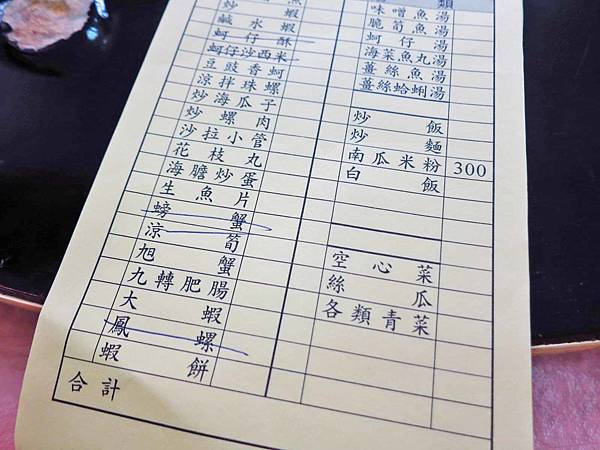 魚
炒蝦
鹹水蝦
蚵仔酥
蚵仔沙西米
豆豉香蚵
涼拌珠螺
炒海瓜子
炒螺肉
沙拉小管
花枝丸
海膽炒蛋
生魚片
螃蟹
涼筍
旭蟹
九轉肥腸
大蝦
鳳螺
蝦餅
合計
類
味噌魚湯
脆筍魚湯
蚵仔湯
海菜魚丸湯
薑絲魚湯
薑絲蛤蜊湯
炒飯
炒麵
南瓜米粉 300
白飯
空心菜
絲瓜
各類青菜